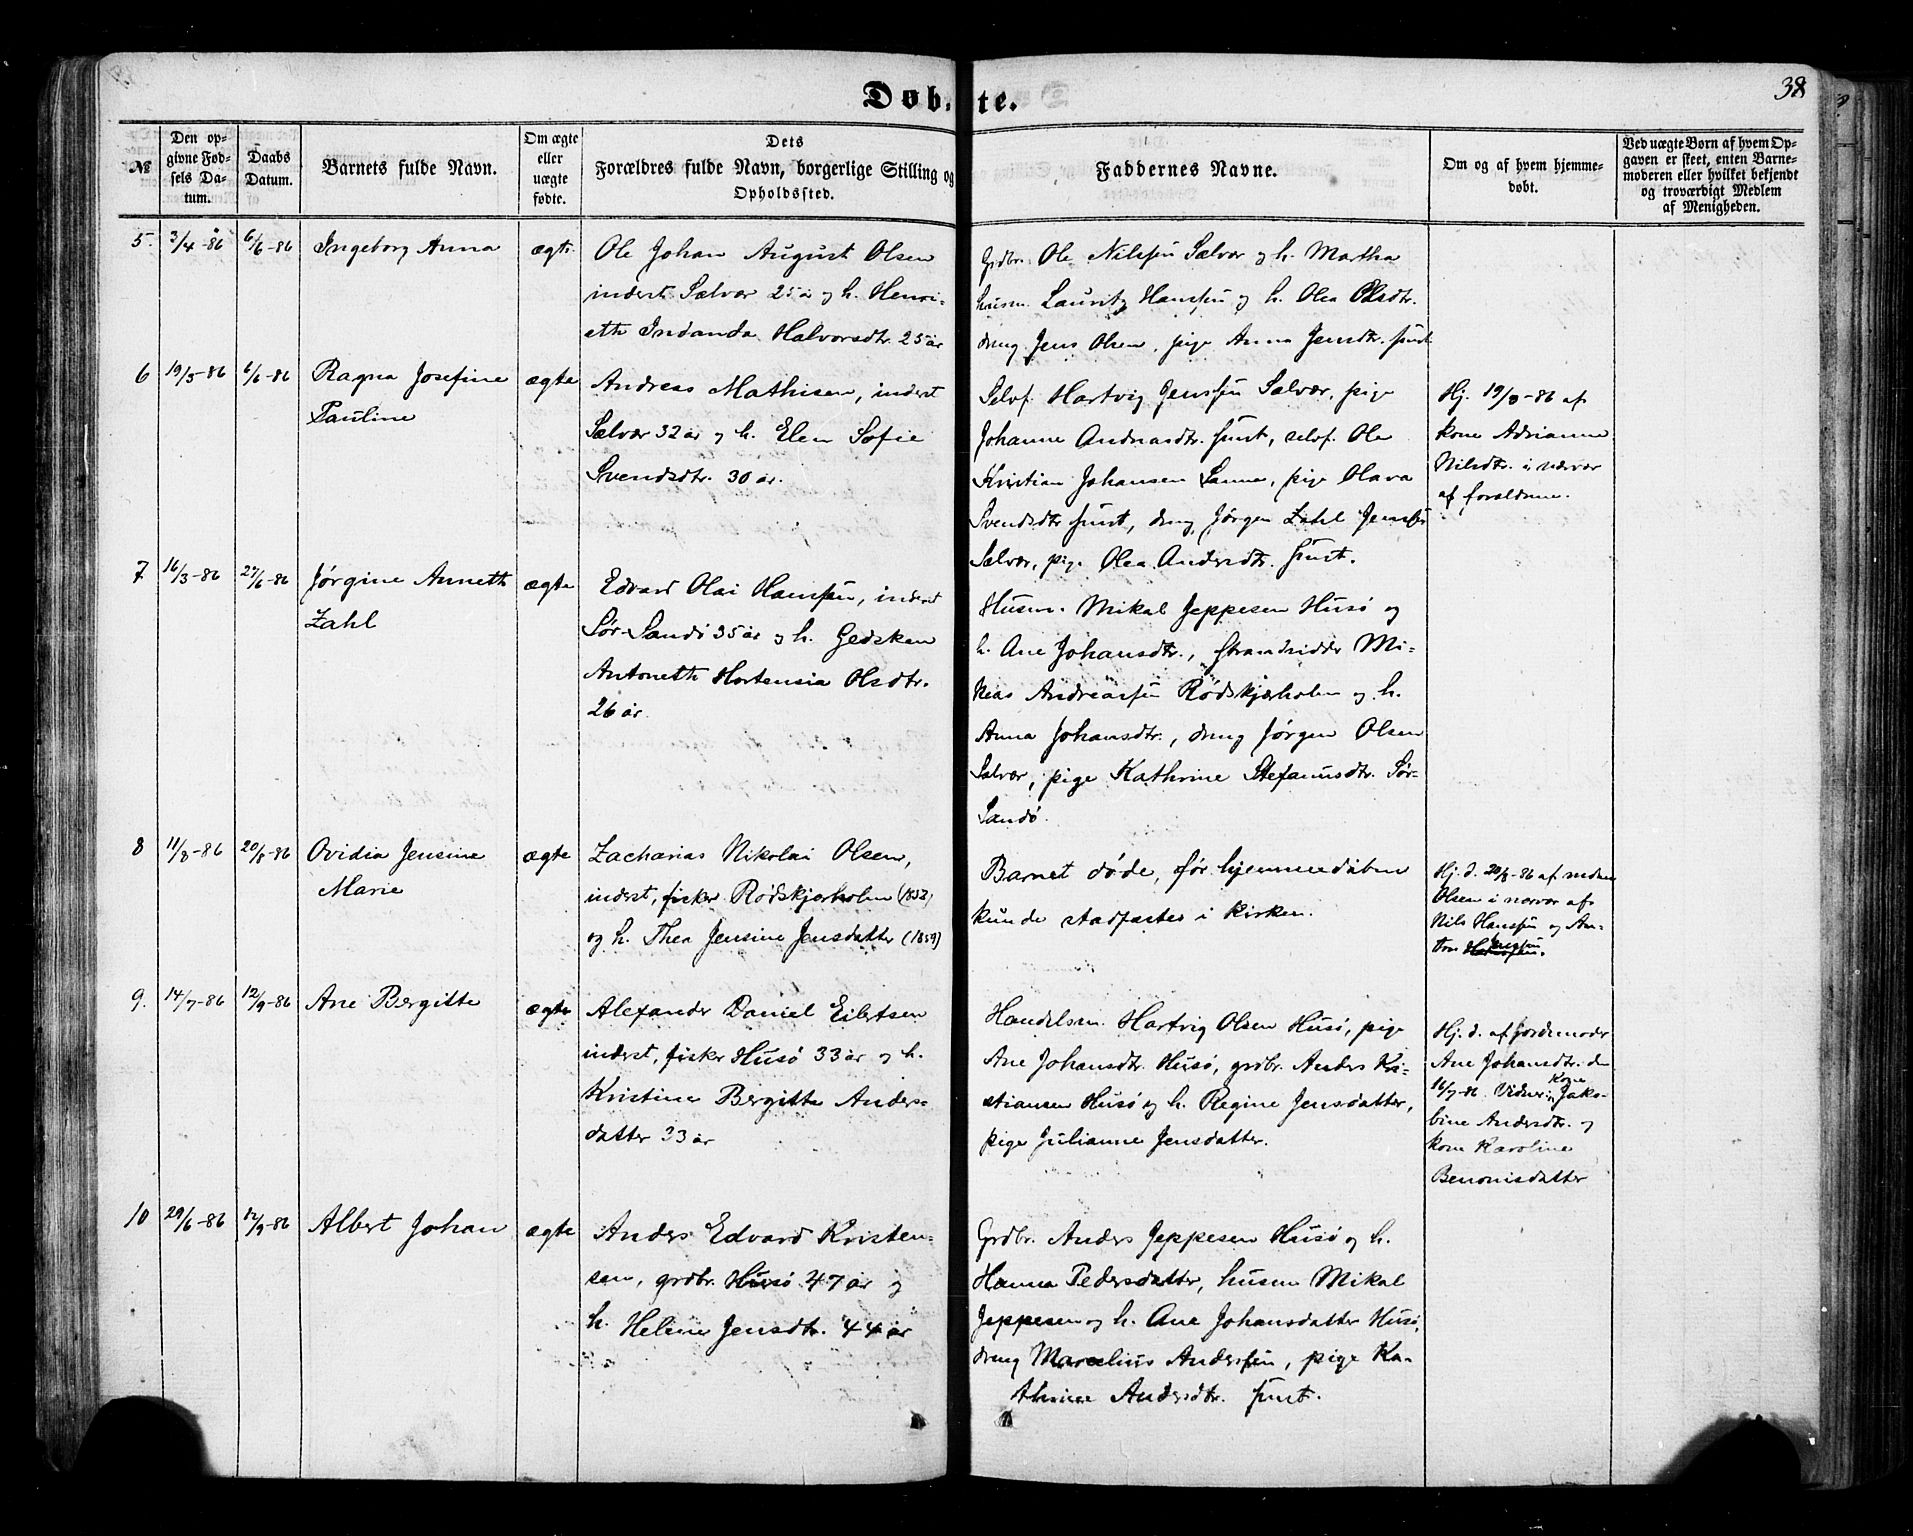 Døb- te.
38
№
Den op-
givne Fød-
sels Da-
tum.
Daabs
Datum.
Barnets fulde Navn.
Om ægte
eller
uægte
fødte.
Dets
Forældres fulde Navn, borgerlige Stilling og
Opholdssted.
Faddernes Navne.
Om og af hvem hjemme-
døbt.
Ved uægte Børn af hvem Op-
gaven er skeet, enten Barne-
moderen eller hvilket bekjendt
og troværdigt Medlem
af Menigheden.
5. 3/4-86 6/6-86 Ingeborg Anna ægte
Ole Johan August Olsen
inderst Selvær 25 år og h. Henri-
ette Indianda Halvorsdtr. 25 år
Grdbr. Ole Nilssen Selvær og h. Martha
husm. Lauritz Hanssen og h. Olea Olsdtr.
dreng Jens Olsen, pige Anna Jensdtr. smst
6 19/5-86 6/6-86 Ragna Josefine ægte
Pauline
Andreas Mathisen, inderst
Selvær 32 år og h. Elen Sofie
Svendsdtr. 30 år.
Selvf. Hartvig Jenssen Selvær, pige
Johanne Andreasdtr. smst, selvf. Ole
Kristian Johansen Sanna, pige Olava
Svendsdtr smst, dreng Jørgen Zahl Jenssen
Selvær, pige Olea Andersdtr. smst.
Hj. 19/5-86 af
kone Adrianne
Nilsdtr. i nærvær
af forældrene.
7 16/3-86 27/6-86 Jørgine Annette ægte
Zahl
Edvard Olai Hanssen, inderst
Sør-Sandö 35 år og h. Gedsken
Antonette Hortensia Olsdtr.
26 år.
Husm. Mikal Jeppesen Husö og
h. Ane Johansdtr., strandsidder Mi-
kias Andreassen Rødskjærholm og h.
Anna Johansdtr., dreng Jørgen Olsen
Selvær, pige Kathrine Stefanusdtr. Sør-
Sandö.
8 11/8-86 20/8-86 Ovidia Jensine ægte
Marie
Zacharias Nikolai Olsen,
inderst, fisker Rødskjærholm (1852)
og h. Thea Jensine Jensdatter (1859)
Barnet døde, før hjemmedåben
kunde stadfæstes i kirken.
Hj. d. 20/8-86 af
Olsen i nærvær af
Nils Hanssen og An-
ton Jenssen.
9. 14/7-86 12/9-86 Ane Bergitte ægte
Alexander Daniel Eilertsen
inderst, fisker Husö 33 år og h.
Kristine Bergitte Anders-
datter 33 år
Handelsm. Hartvig Olsen Husö, pige
Ane Johansdtr. Husö, grdbr. Anders Kri-
stiansen Husö og h. Regine Jensdatter,
pige Julianne Jensdatter.
Hj. d. af jordemoder
Ane Johansdtr. d.
16/7-86. Vidner: Kone Jako-
bine Andersdtr. og
kone Karoline
Benonisdatter
10 29/6-86 12/9-86 Albert Johan ægte
Anders Edvard Kristen-
sen, grdbr. Husö 47 år og
h. Heline Jensdtr. 44 år
Grdbr. Anders Jeppesen Husö og h.
Hanna Pedersdatter, husm Mikal
Jeppesen og h. Ane Johansdatter Husö,
dreng Marcelius Anderssen, pige Ka-
thrine Andersdtr. smst.